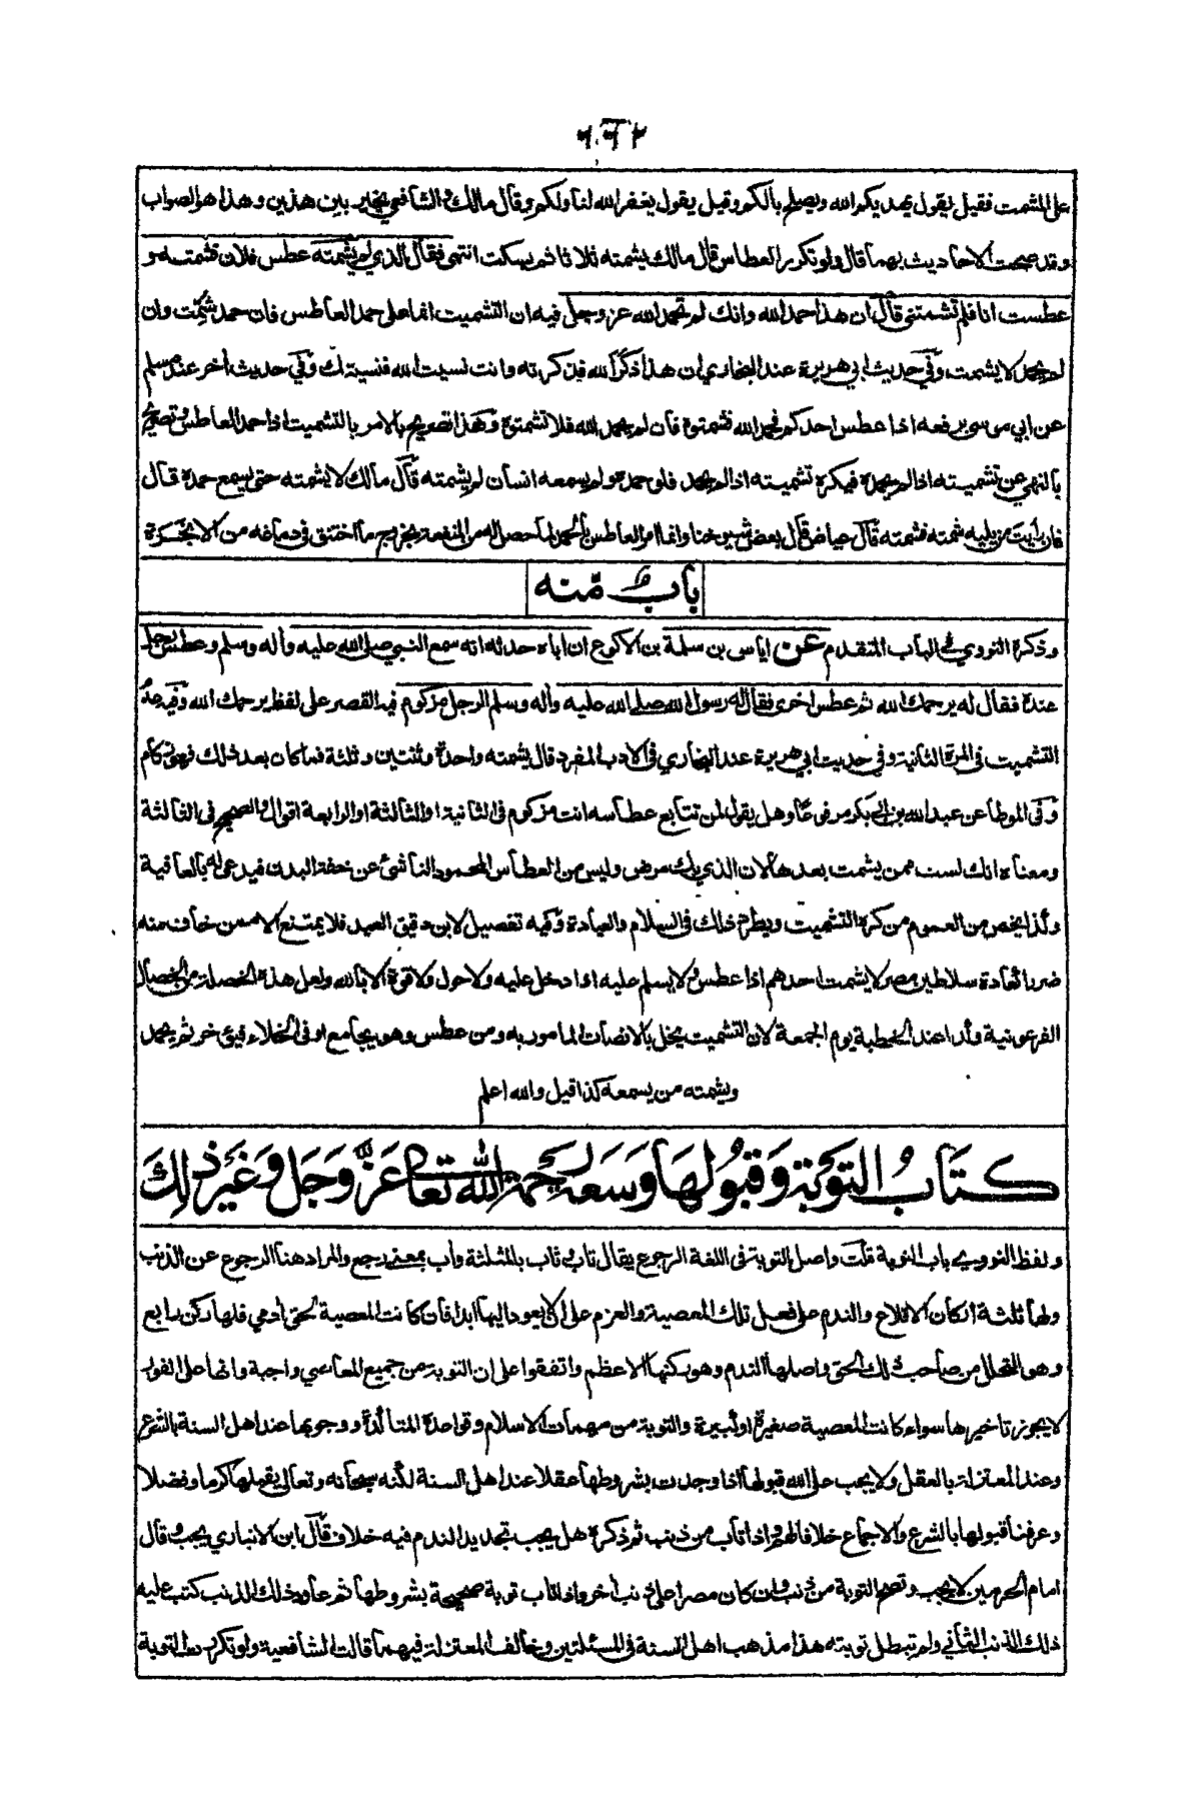 على المشمت فقيل يقول يهديكم الله ويصلح بالكم وقيل يقول يغفر الله لنا ولكم وقال مالك والشافعي يخير بين هذين وهذا هو الصواب
وقد صحت الاحاديث بهما قال ولو تكرر العطاس قال مالك يشمته ثلاثا ثم يسكت انتهى فقال الذي لم يشمته عطس فلان فشمته و
عطست انا فلم تشمتني قال ان هذا حمد الله وانك لم تحمد الله عز وجل فيه ان التشميت انما على حمد العاطس فان حمد شمت وان
لم يحمد لا يشمت وفي حديث ابي هريرة عند البخاري ان هذا ذكر الله فذكرته وانت نسيت الله فنسيتك وفي حديث اخر عند مسلم
عن ابي موسى يرفعه اذا عطس احدكم فحمد الله فشمتوه فان لم يحمد الله فلا تشمتوه وهذا تصريح بالامر بالتشميت اذا حمد العاطس وتصريح
بالنهي عن تشميته اذا لم يحمده فيكره تشميته اذا لم يحمد فلو حمد ولم يسمعه انسان لم يشمته قال مالك لا يشمته حتى يسمع حمده قال
فان رأيت من يليه شمته فشمته قال عياض قال بعض شيوخنا وانما امر العاطس بالحمد لما حصل له من المنفعة بخروج ما اختنق في دماغه من الابخرة
باب منه
وذكره النووي في الباب المتقدم عن اياس بن سلمة بن الاكوع ان اباه حدثه انه سمع النبي صلى الله عليه وآله وسلم وعطس رجل
عنده فقال له يرحمك الله ثم عطس اخرى فقال له رسول الله صلى الله عليه وآله وسلم الرجل مزكوم فيه القصر على لفظ يرحمك الله وفيه عدم
التشميت في المرة الثانية وفي حديث ابي هريرة عند البخاري في الادب المفرد قال يشمته واحدة وثنتين وثلثة فما كان بعد ذلك فهو زكام
وفي الموطا عن عبد الله بن ابي بكر مرفوعا وهل يقول لمن تتابع عطاسه انت مزكوم في الثانية او الثالثة او الرابعة اقوال والصحيح في الثالثة
ومعناه انك لست ممن يشمت بعدها لان الذي بك مرض وليس من العطاس المحمود الناشئ عن خفة البدن فيدعى له بالعافية
ولذا يخص من العموم من كره التشميت ويطرح ذلك في السلام والعيادة وفيه تفصيل لابن دقيق العيد فلا يمتنع الا ممن خاف منه
ضررا كعادة سلاطين مصر لا يشمت احدهم اذا عطس ولا يسلم عليه اذا دخل عليه ولا حول ولا قوة الا بالله ولعل هذه الخصلة من الخصال
الفرعونية وكذا عند الخطبة يوم الجمعة لان التشميت يخل بالانصات المامور به ومن عطس وهو يجامع او في الخلاء فيؤخر ثم يحمد
ويشمته من يسمعه كذا قيل والله اعلم
كتاب التوبة وقبولها وسعة رحمة الله تعالى عز وجل وغير ذلك
ولفظ النووي باب التوبة قلت واصل التوبة في اللغة الرجوع يقال تاب وثاب بالمثلثة وآب بمعنى رجع والمراد هنا الرجوع عن الذنب
ولها ثلثة اركان الاقلاع والندم على فعل تلك المعصية والعزم على ان لا يعود اليها ابدا فان كانت المعصية لحق ادمي فلها ركن رابع
وهو التحلل من صاحب ذلك الحق واصلها الندم وهو ركنها الاعظم واتفقوا على ان التوبة من جميع المعاصي واجبة وانها على الفور
لا يجوز تاخيرها سواء كانت المعصية صغيرة او كبيرة والتوبة من مهمات الاسلام وقواعده المتاكدة ووجوبها عند اهل السنة بالشرع
وعند المعتزلة بالعقل ولا يجب على الله قبولها اذا وجدت بشروطها عقلا عند اهل السنة لكنه سبحانه وتعالى يقبلها كرما وفضلا
وعرفنا قبولها بالشرع والاجماع خلافا لهم واذا تاب من ذنب ثم ذكره هل يجب تجديد الندم فيه خلاف قال ابن الانباري يجب وقال
امام الحرمين لا يجب وتصح التوبة من ذنب وان كان مصرا على ذنب اخر واذا تاب توبة صحيحة بشروطها ثم عاود ذلك الذنب كتب عليه
ذلك الذنب الثاني ولم تبطل توبته هذا مذهب اهل السنة في المسئلتين وخالف المعتزلة فيهما قالت الشافعية ولو تكررت التوبة